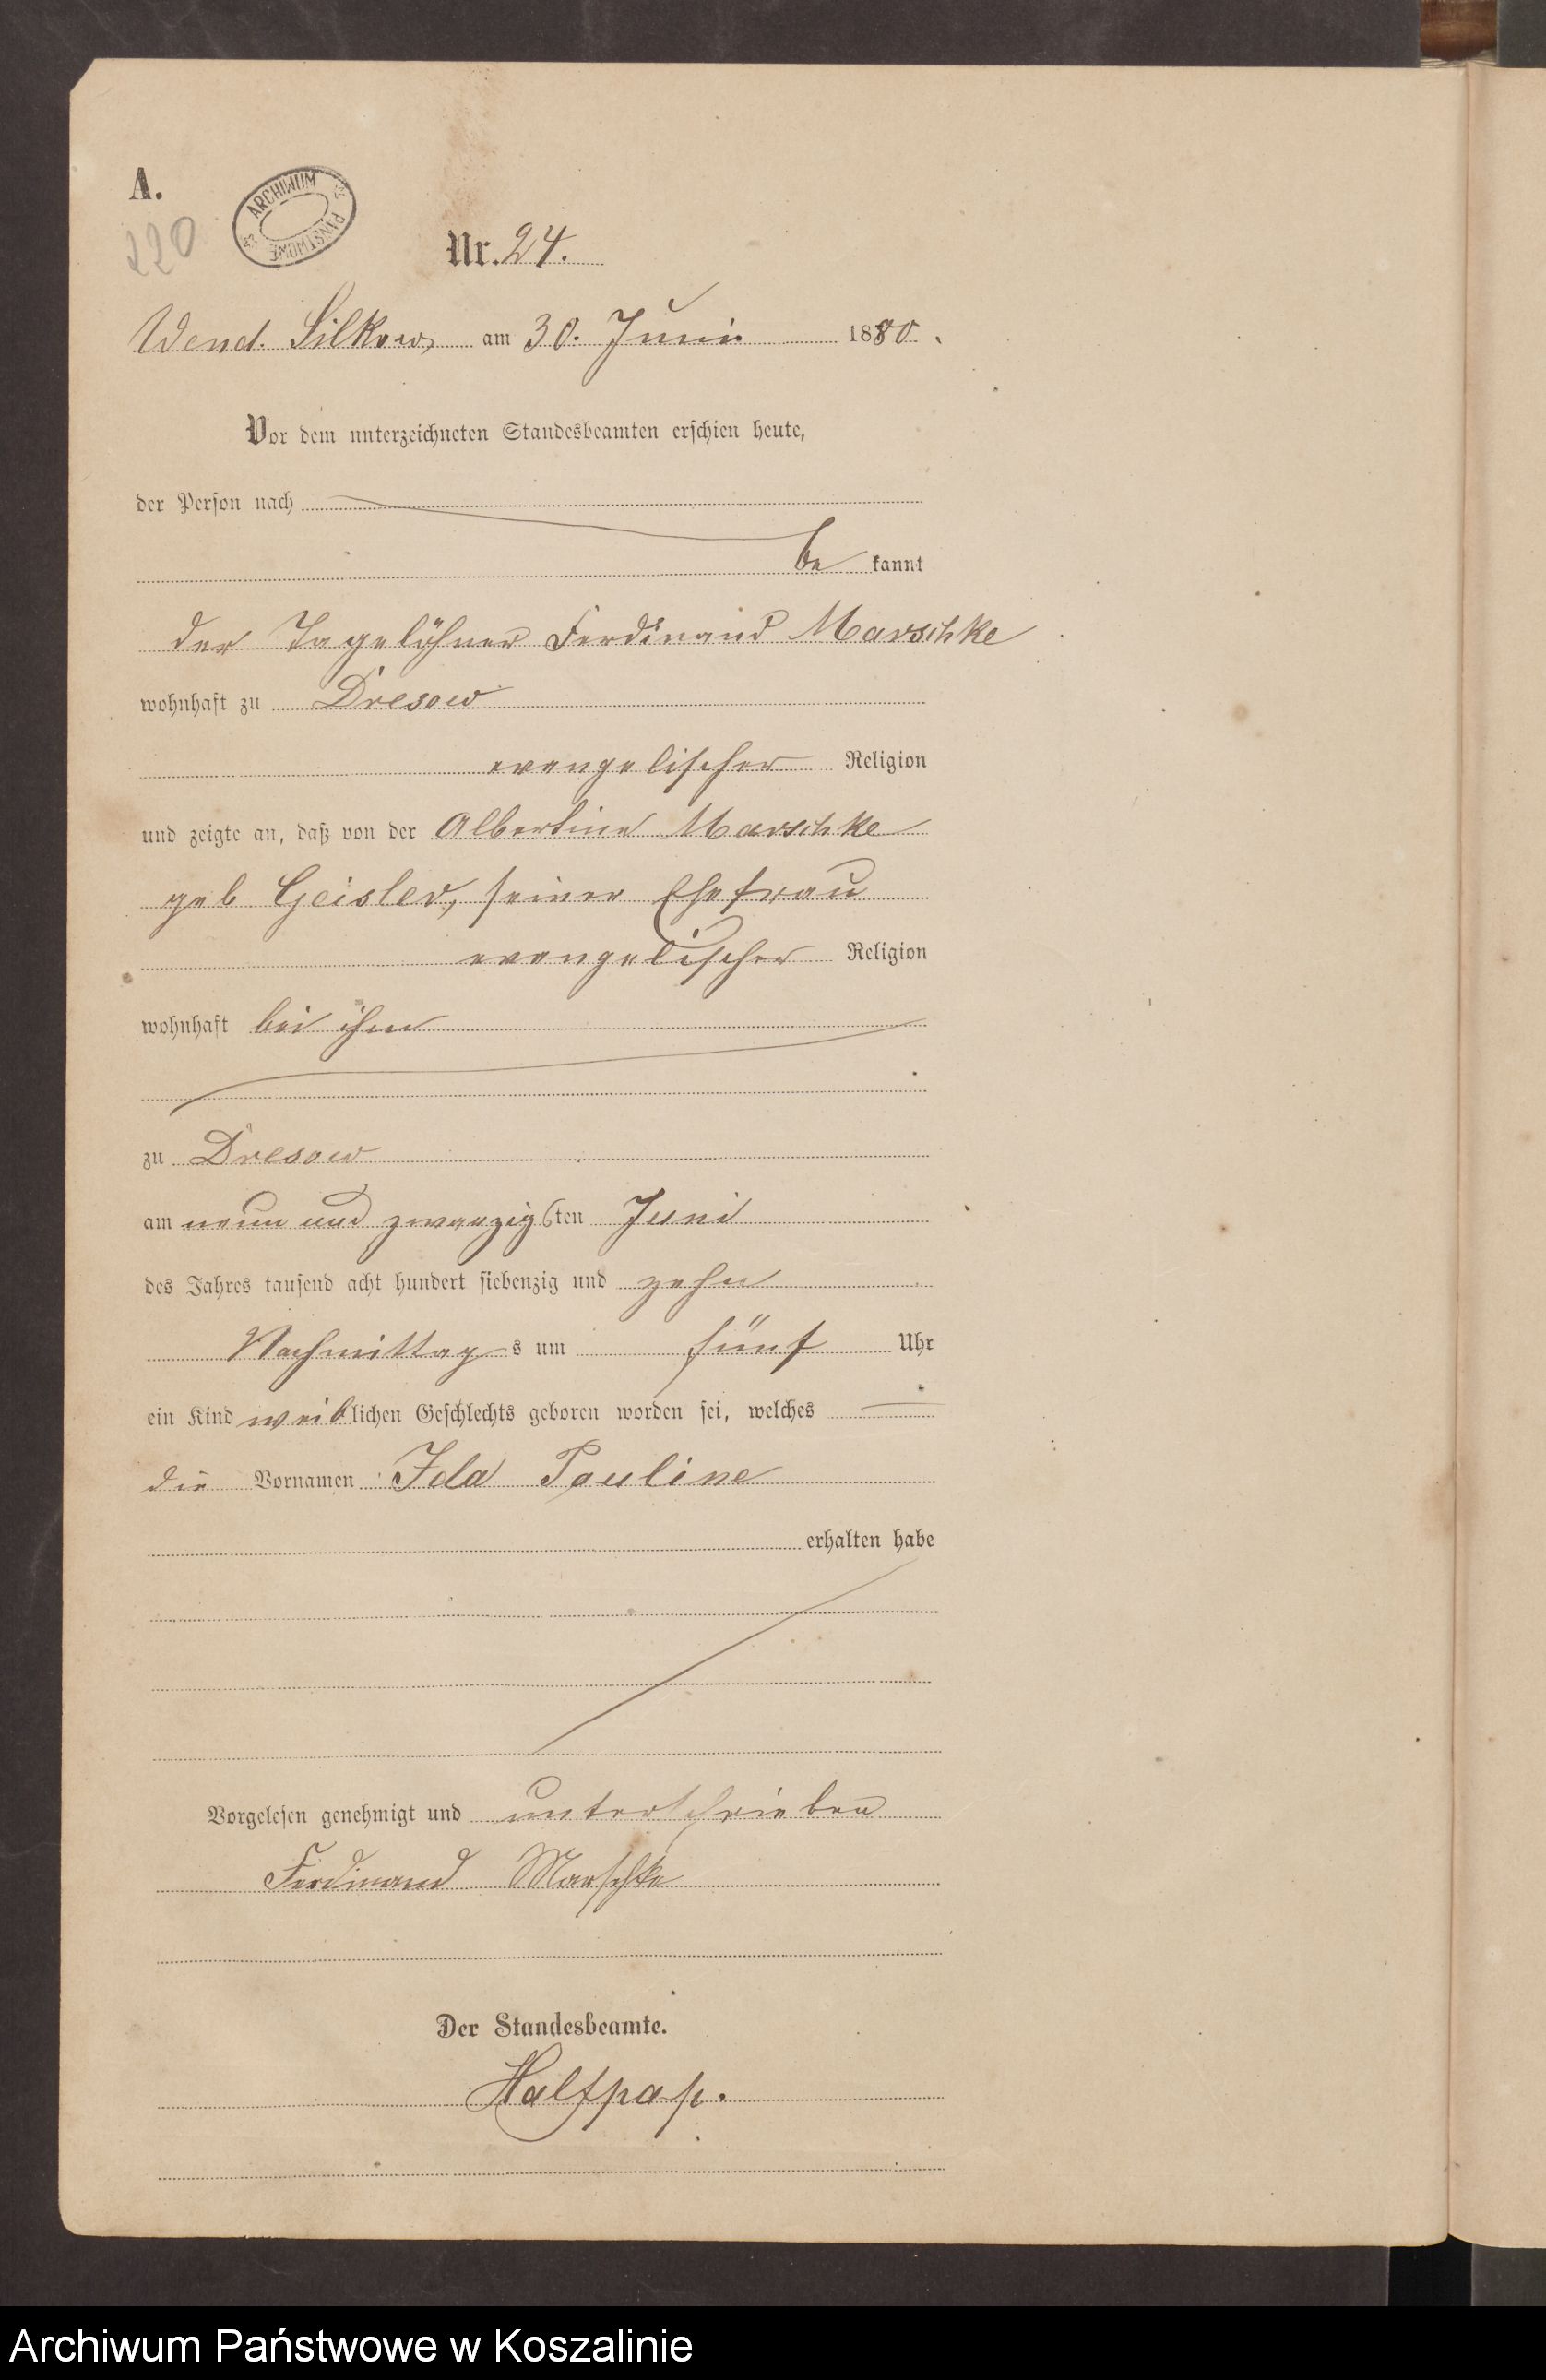 A.
220
ARCHIWUM PAŃSTWOWE
Nr. 24.
Wend. Silkow, am 30. Juni 1880.
Vor dem unterzeichneten Standesbeamten erschien heute,
der Person nach
be kannt
der Tagelöhner Ferdinand Marschke
wohnhaft zu Dresow
evangelischer Religion
und zeigte an, daß von der Albertine Marschke
geb Geisler, seiner Ehefrau
evangelischer Religion
wohnhaft bei ihm
zu Dresow
am neun und zwanzigsten Juni
des Jahres tausend acht hundert siebenzig und zehn
Nachmittags um fünf Uhr
ein Kind weiblichen Geschlechts geboren worden sei, welches
die Vornamen Ida Pauline
erhalten habe
Vorgelesen genehmigt und unterschrieben
Ferdinand Marschke
Der Standesbeamte.
Halfpap.
Archiwum Państwowe w Koszalinie